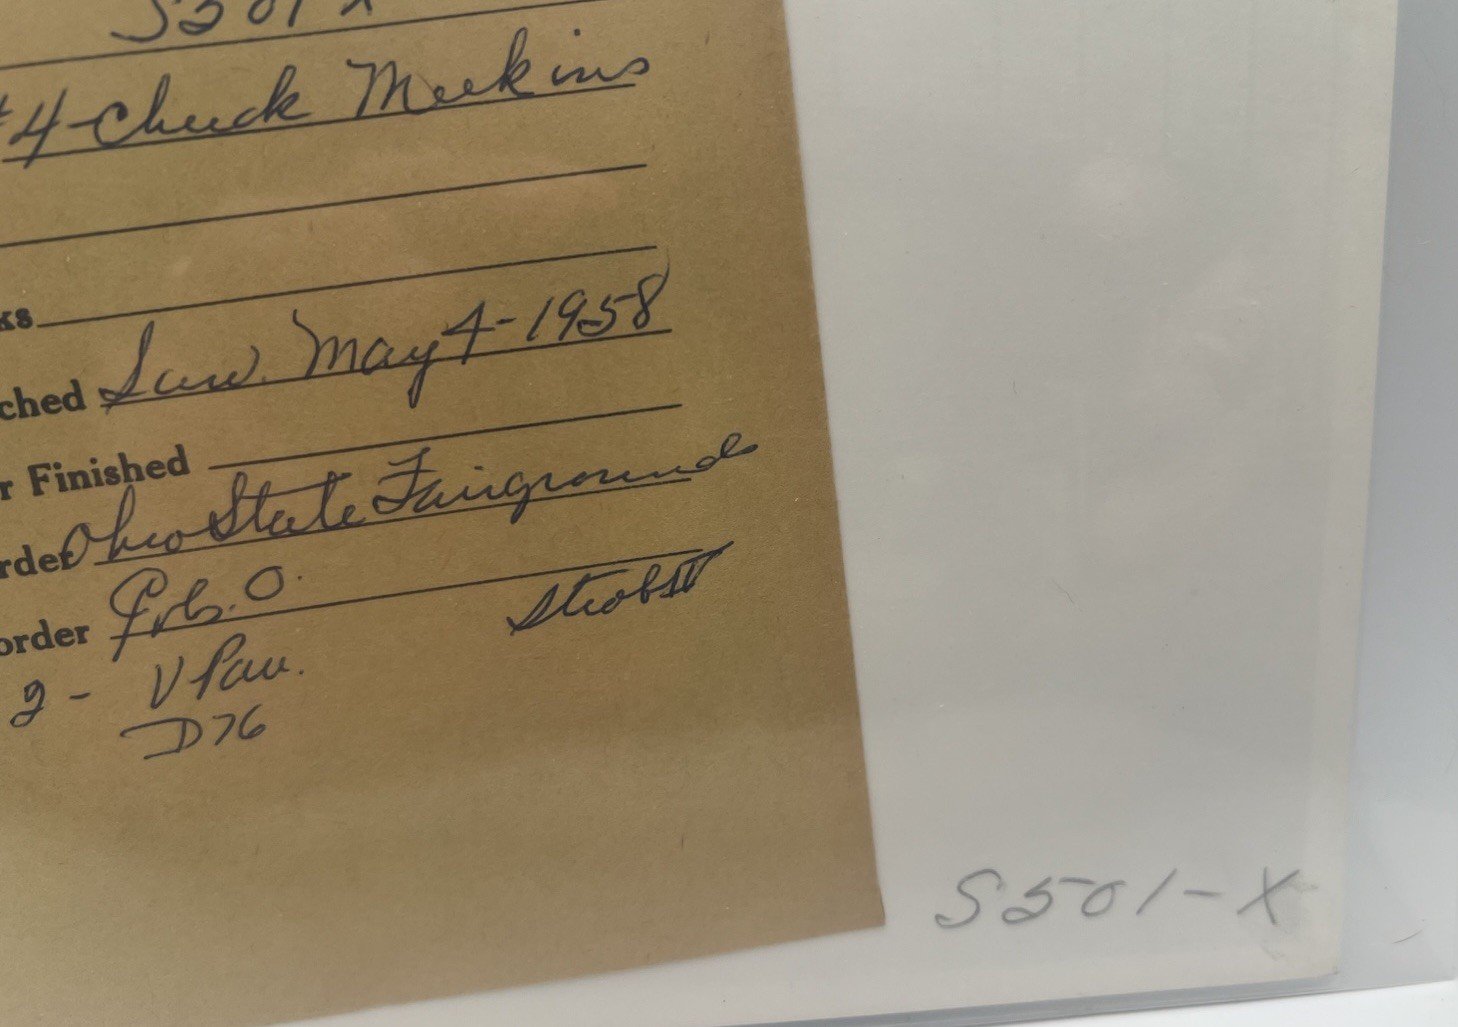 S501-X
#4-Chuck Meekins
ks
ched Sun. May 4-1958
r Finished
rder Ohio State Fairgrounds
order Cols. O.
Strobs
2 - V Pan.
D76
S501-X